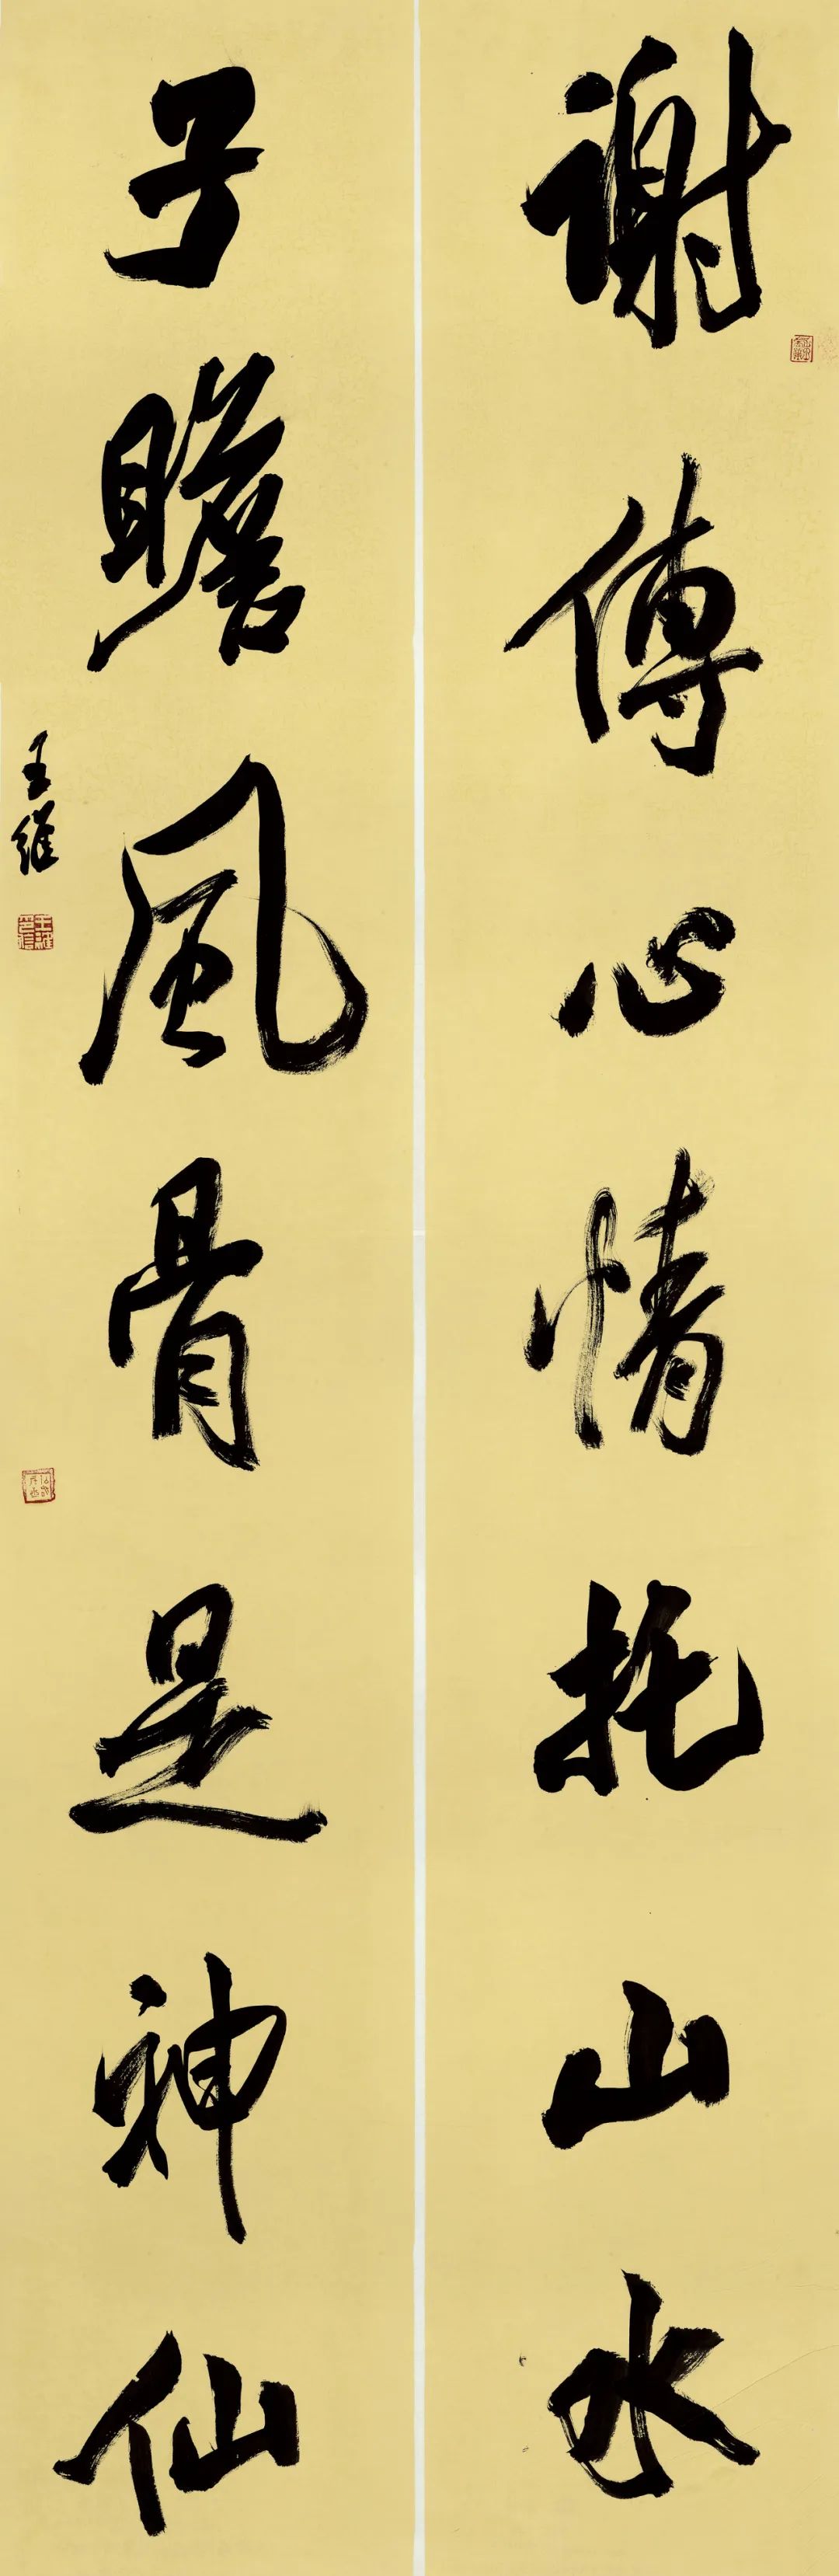 谢傅心情托山水
子瞻風骨是神仙
王維